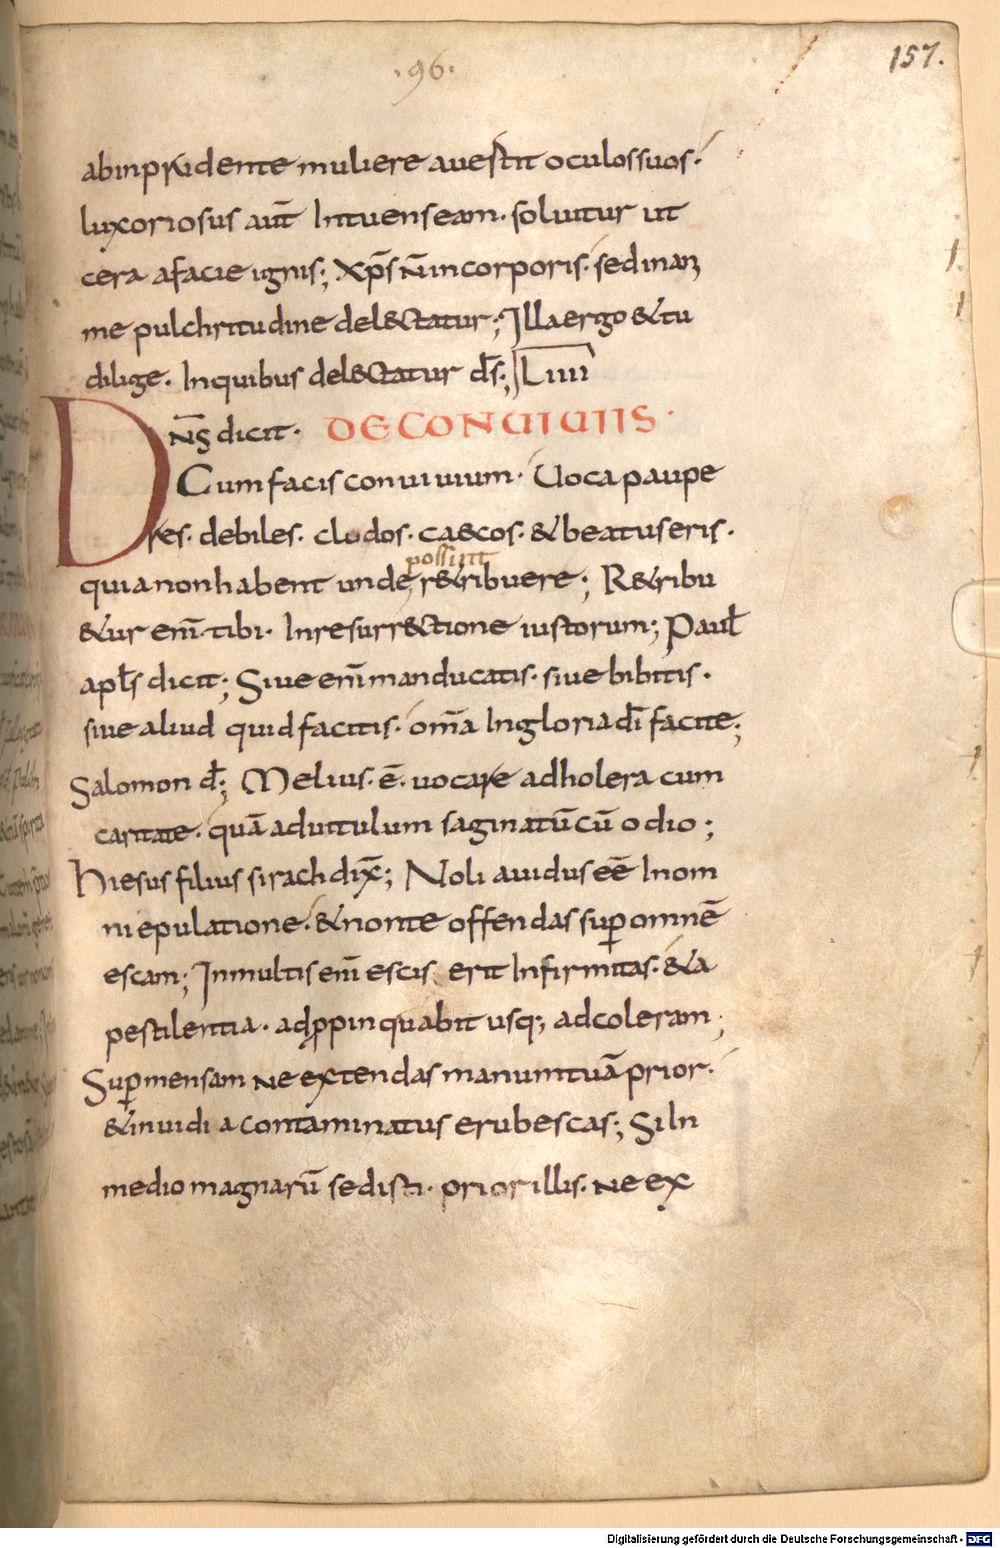 ·96·
157.
abinprudente muliere auestit oculossuos·
luxoriosus aut̄ Intuenseam· soluitur ut
cera afacie ignis; Xp̄s n̄ incorporis· sed inani
me pulchritudine del&ctatur; Illaergo &tu
dilige· Inquibus del&ctatur d̄s; LIIII
DN̄S dicit· DECONUIUIIS·
Cum facis conuiuium· Uoca paupe
res· debiles· clodos· caecos· & beatuseris·
possunt
quia non habent unde r&ribuere; R&ribu
&ur eni̅ tibi· Inresurr&ctione iustorum; Paul̄
apl̄s dicit; Siue eni̅ manducatis· siue bibitis·
siue aliud quid facitis· om̄a Ingloria dī facite;
Salomon d̄; Melius· ē· uocare adholera cum
caritate· quā aduitulum saginatū cū odio;
hiesus filius sirach dix̄; Noli auidus eē Inom
ni epulatione· & nonte offendas sup̱ omnē
escam; Inmultis eni̅ escis erit Infirmitas· & a
pestilentia· adp̱pinquabit usq; adcoleram;
Sup̱ mensam ne extendas manum tuā prior·
& inuidia contaminatus erubescas; Si In
medio magnarū sedisti· prior illis· ne ex
Digitalisierung gefördert durch die Deutsche Forschungsgemeinschaft - DFG